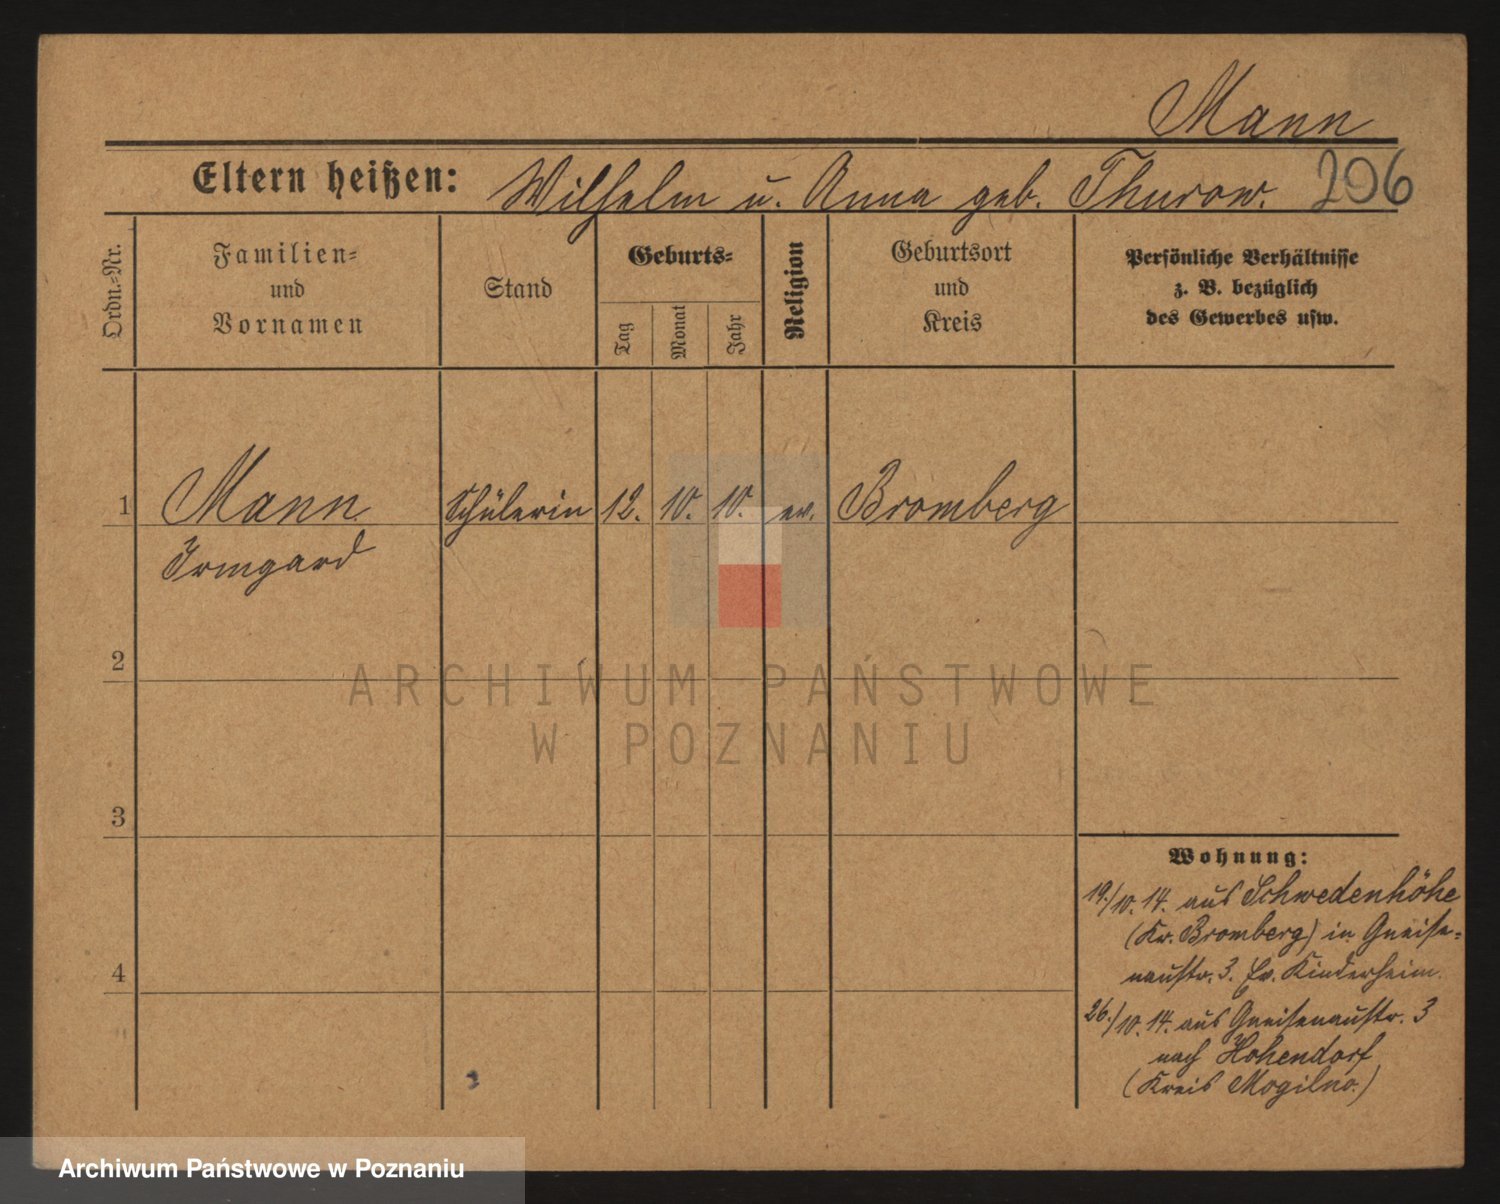 Mann
Eltern heißen: Wilhelm u. Anna geb. Thurow. 206
Ordn.-Nr.
Familien-
und
Vornamen
Stand
Geburts-
Tag
Monat
Jahr
Religion
Geburtsort
und
Kreis
Persönliche Verhältnisse
z. B. bezüglich
des Gewerbes usw.
1 Mann Schülerin 12. 10. 10. ev. Bromberg
Irmgard
2
3
4
Wohnung:
19./10. 14. aus Schwedenhöhe
(Kr. Bromberg) in Gneise-
naustr. 3. Ev. Kinderheim.
26./10. 14. aus Gneisenaustr. 3
nach Hohendorf
(Kreis Mogilno.)
ARCHIWUM PAŃSTWOWE
W POZNANIU
Archiwum Państwowe w Poznaniu